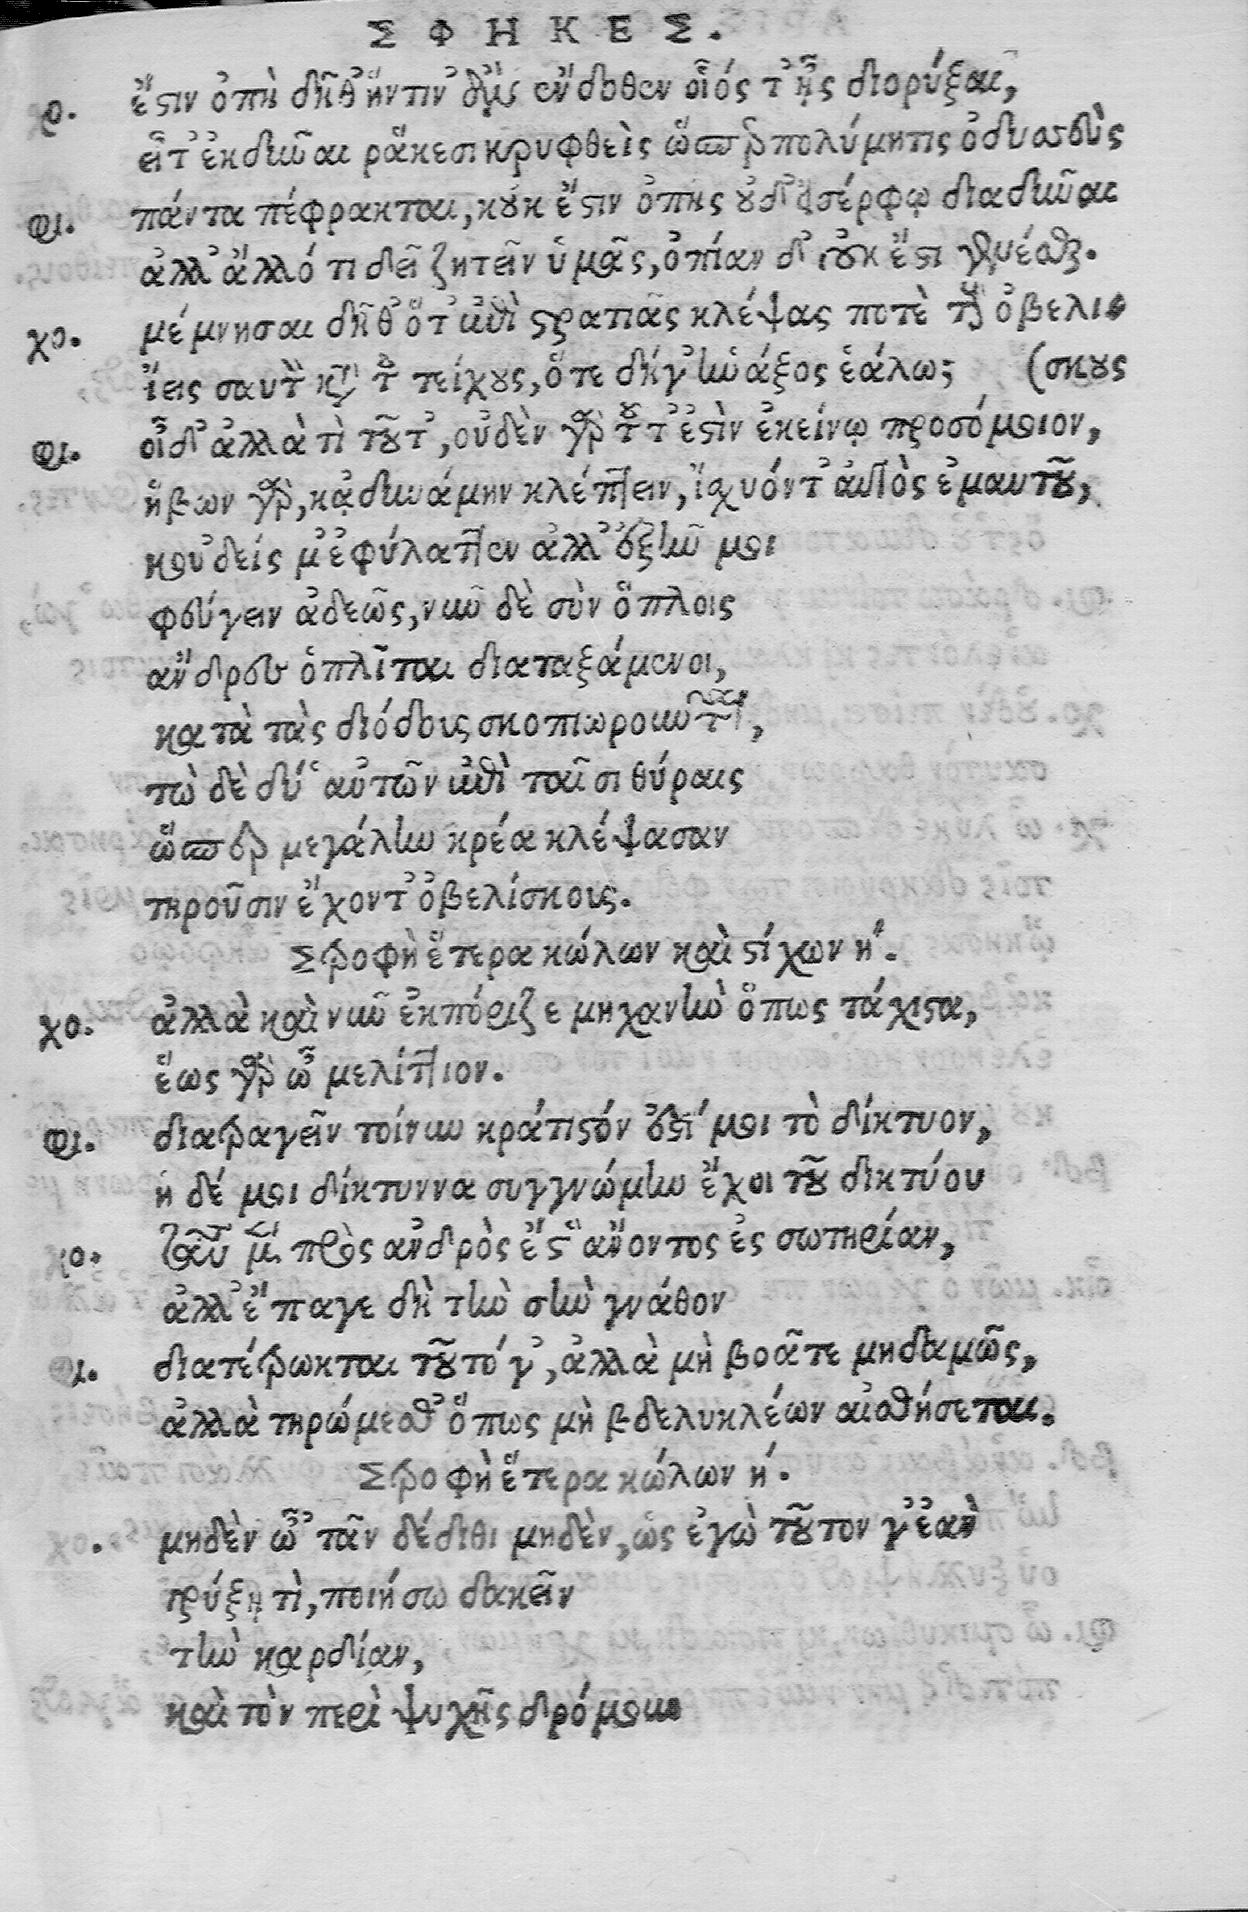 ΣΦΗΚΕΣ.
χο. ἔστιν ὀπὴ δῆθ᾽ ἥντιν᾽ ἂν ἔνδοθεν οἷός τ᾽ ᾖς διορύξαι,
εἶτ᾽ ἐκδῦναι ῥάκεσι κρυφθεὶς ὥσπερ πολύμητις ὀδυσσεὺς
φι. πάντα πέφρακται, κοὐκ ἔστιν ὀπῆς οὐδ᾽ ἂν σέρφῳ διαδῦναι
ἀλλ᾽ ἄλλό τι δεῖ ζητεῖν ὑμᾶς, ὀπίαν δ᾽ οὐκ ἔστι γενέσθαι.
χο. μέμνησαι δῆθ᾽ ὅτ᾽ ἐπὶ στρατιᾶς κλέψας ποτὲ τοὺς ὀβελι
ἵεις σαυτὸν κατὰ τοῦ τείχους, ὅτε δήγ᾽ ἡ νάξος ἑάλω; (σκους
φι. οἶδ᾽ ἀλλὰ τὶ τοῦτ᾽, οὐδὲν γὰρ τοῦτ᾽ ἐστὶν ἐκείνῳ προσόμοιον,
ἥβων γὰρ, κᾀδυνάμην κλέπτειν, ἴσχυόντ᾽ αὐτὸς ἐμαυτοῦ,
κοὐδείς μ᾽ ἐφύλαττεν ἀλλ᾽ ἐξῆν μοι
φεύγειν ἀδεῶς, νῦν δὲ σὺν ὅπλοις
ἄνδρες ὁπλῖται διαταξάμενοι,
κατὰ τὰς διόδους σκοπιωροῦνται,
τὼ δὲ δύ᾽ αὐτῶν ἐπὶ ταῖσι θύραις
ὥσπερ με γάλην κρέα κλέψασαν
τηροῦσιν ἔχοντ᾽ ὀβελίσκους.
Στροφὴ ἕτερα κώλων καὶ στίχων η΄.
χο. ἀλλὰ καὶ νῦν ἐκπόριζε μηχανὴν ὅπως τάχιστα,
ἕως γὰρ ὦ μελίττιον.
φι. διατραγεῖν τοίνυν κράτιστόν ἐστί μοι τὸ δίκτυον,
ἡ δέ μοι δίκτυννα συγγνώμην ἔχοι τοῦ δικτύου
χο. ταῦτα μὲν πρὸς ἀνδρὸς ἔστ᾽ ἄνοντος ἐς σωτηρίαν,
ἀλλ᾽ ἔπαγε δὴ τὴν σὴν γνάθον
φι. διατέτρωκται τοῦτό γ᾽, ἀλλὰ μὴ βοᾶτε μηδαμῶς,
ἀλλὰ τηρώμεσθ᾽ ὅπως μὴ βδελυκλέων αἰσθήσεται.
Στροφὴ ἕτερα κώλων η΄.
μηδὲν ὦ᾽ τᾶν δέδιθι μηδὲν, ὡς ἐγὼ τοῦτον γ᾽ ἐὰν
γρύξῃ τὶ, ποιήσω δακεῖν
τὴν καρδίαν,
καὶ τὸν περὶ ψυχῆς δρόμον